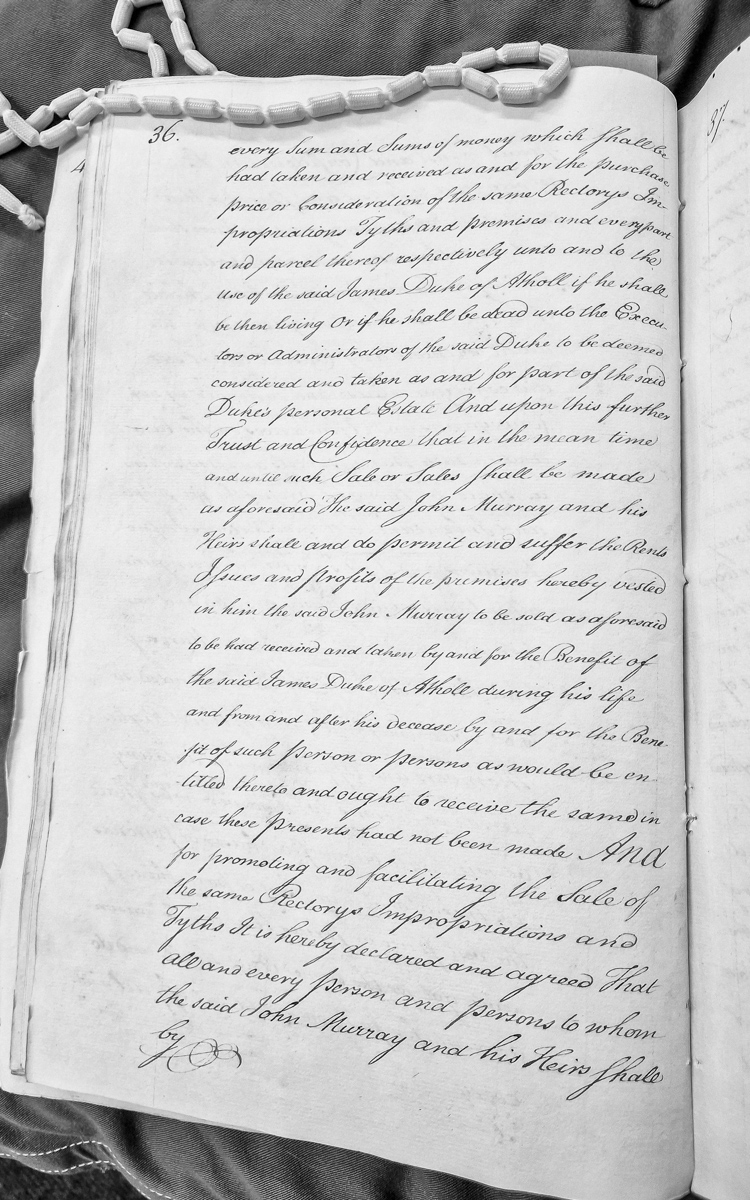 36.
every Sum and Sums of money which shall be
had taken and received as and for the purchase
price or Consideration of the same Rectorys Im-
propriations Tyths and premises and every part
and parcel thereof respectively unto and to the
use of the said James Duke of Atholl if he shall
be then living Or if he shall be dead unto the Execu-
tors or Administrators of the said Duke to be deemed
considered and taken as and for part of the said
Duke's personal Estate And upon this further
Trust and Confidence that in the mean time
and until such Sale or Sales shall be made
as aforesaid The said John Murray and his
Heirs shall and do permit and suffer the Rents
Issues and profits of the premises hereby vested
in him the said John Murray to be sold as aforesaid
to be had received and taken by and for the Benefit of
the said James Duke of Atholl during his life
and from and after his decease by and for the Bene-
fit of such person or persons as would be en-
titled thereto and ought to receive the same in
case these presents had not been made And
for promoting and facilitating the Sale of
the same Rectorys Impropriations and
Tyths It is hereby declared and agreed That
all and every person and persons to whom
the said John Murray and his Heirs shall
by
37.
4